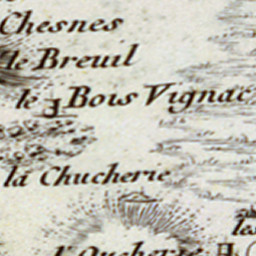 Chesnes
le Breuil
le Bois Vignac
la Chucherie
les
l'Oucherie